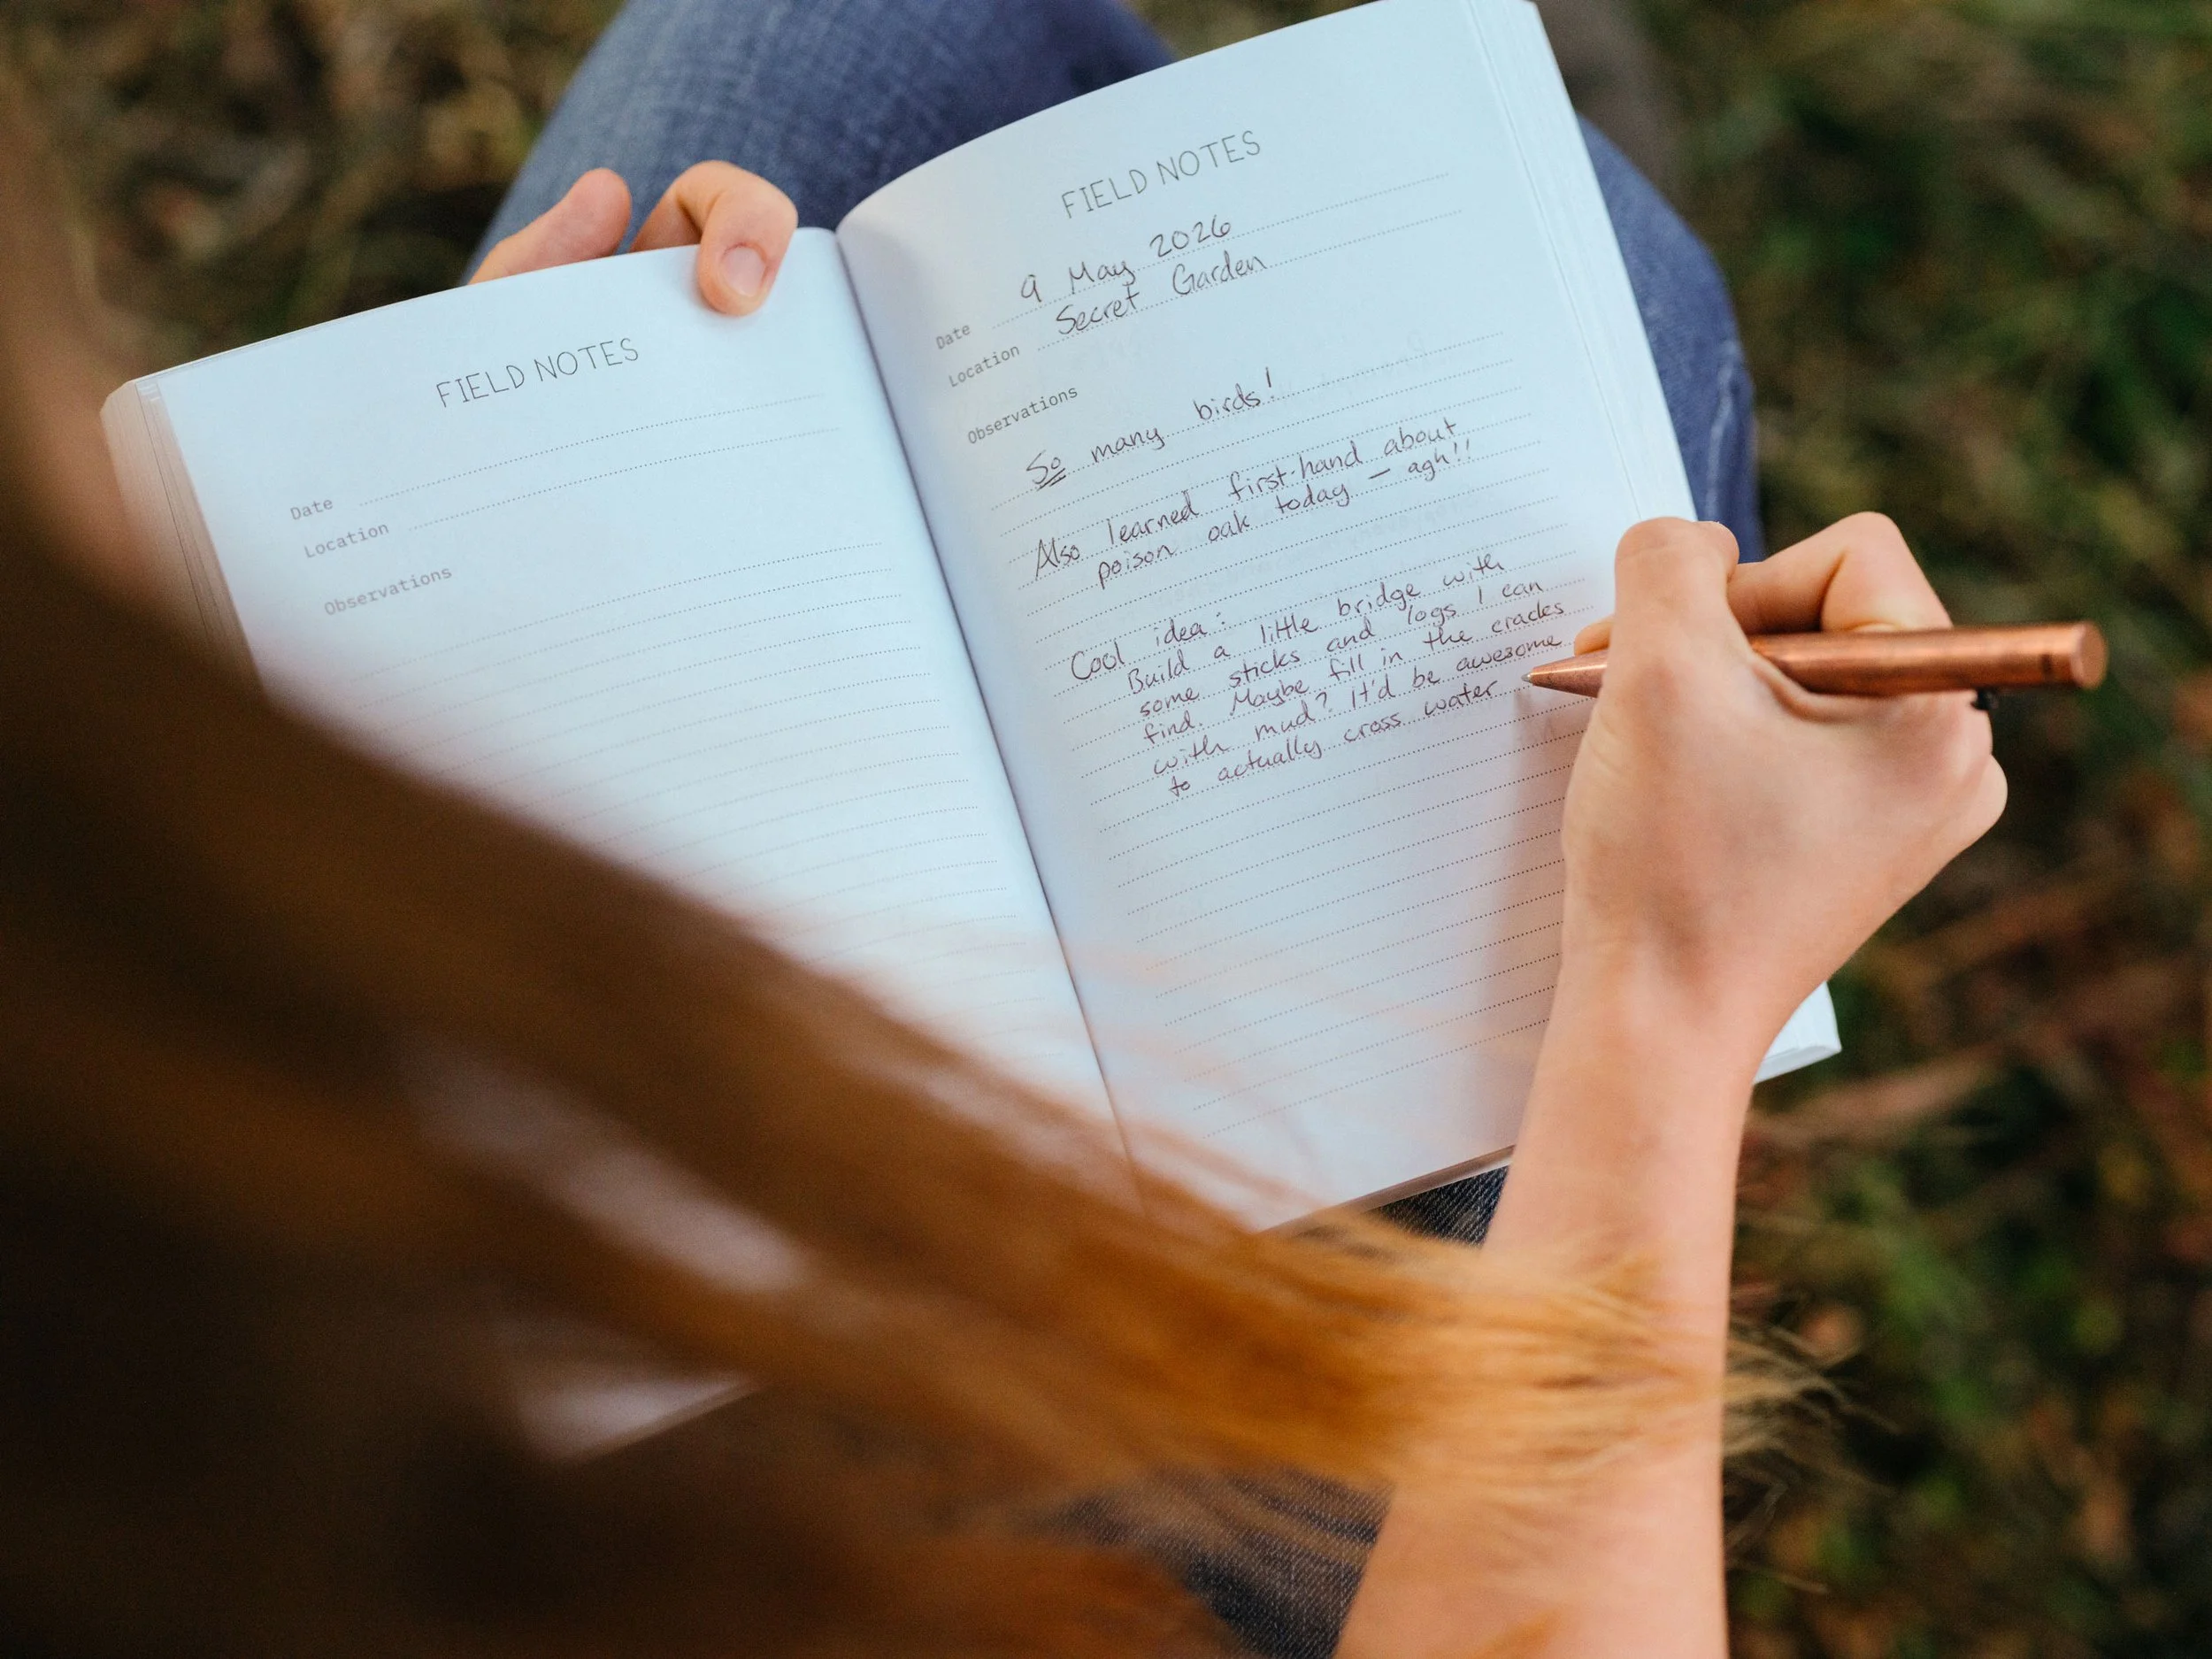 FIELD NOTES
Date
Location
Observations
FIELD NOTES
Date 9 May 2026
Location Secret Garden
Observations
So many birds!
Also learned first-hand about
poison oak today — agh!!
Cool idea:
Build a little bridge with
some sticks and logs I can
find. Maybe fill in the cracks
with mud? It'd be awesome
to actually cross water